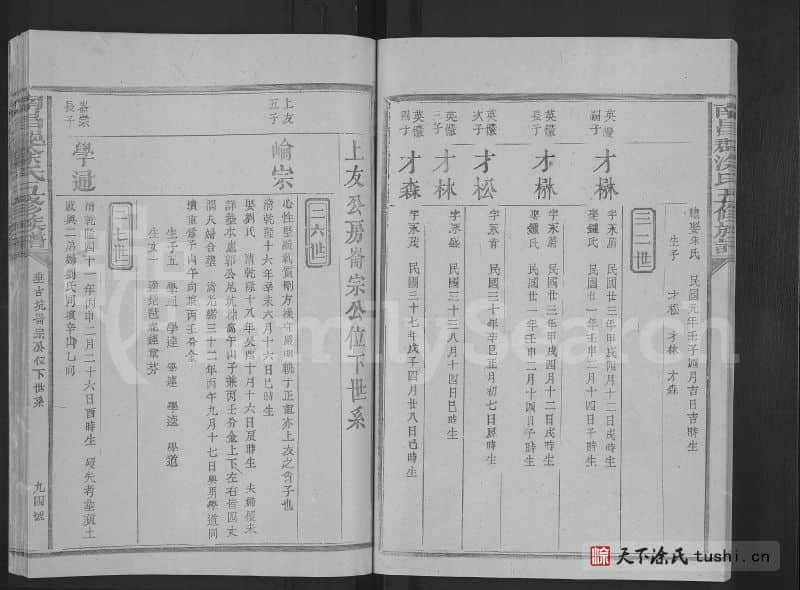 續娶朱氏 民國元年壬子四月吉日吉時生
生子 才松 才林 才森
三二世
英
嗣子
才楙
字永蔚 民國廿三年甲戌四月十二日戌時生
娶鍾氏 民國廿一年壬申二月十四日子時生
英儼
長子
才楙
字永蔚 民國廿三年甲戌四月十二日戌時生
娶鍾氏 民國廿一年壬申二月十四日子時生
英儼
次子
才松
字永青 民國三十年辛巳正月初七日辰時生
英儼
三子
才林
民國三十 八月十四日巳時生
英儼
四子
才森
字永茂 民國三十七年戊子四月廿八日巳時生
上友公房崙宗公位下世系
二六世
上友
五子
崙宗
心性堅 氣質剛方 守嚴明執于正直亦上友之 子也
清乾隆十六年辛未六月十六日巳時生
娶劉氏 清乾隆十八年癸酉十月十六日辰時生 夫婦歿失
詳墓本處郭公尾坑 窩午山子兼丙壬分金上下左右皆四丈
清夫婦合塋 清光緒三十二年丙午九月十七日與男學道同
墳 山午向 丙壬分金
生子五 學通 學達 學連 學遠 學道
生女一
二七世
崙宗
長子
學通
清乾隆四十一年丙申二月二十六日酉時生 歿失考墓 土
與二弟婦劉氏同墳辛山乙向
垂古坑崙宗公位下世系
九四號
南昌郡涂氏五修族譜
南昌郡涂氏五修族譜
FamilySearch
涂 天下涂氏 tushi.cn